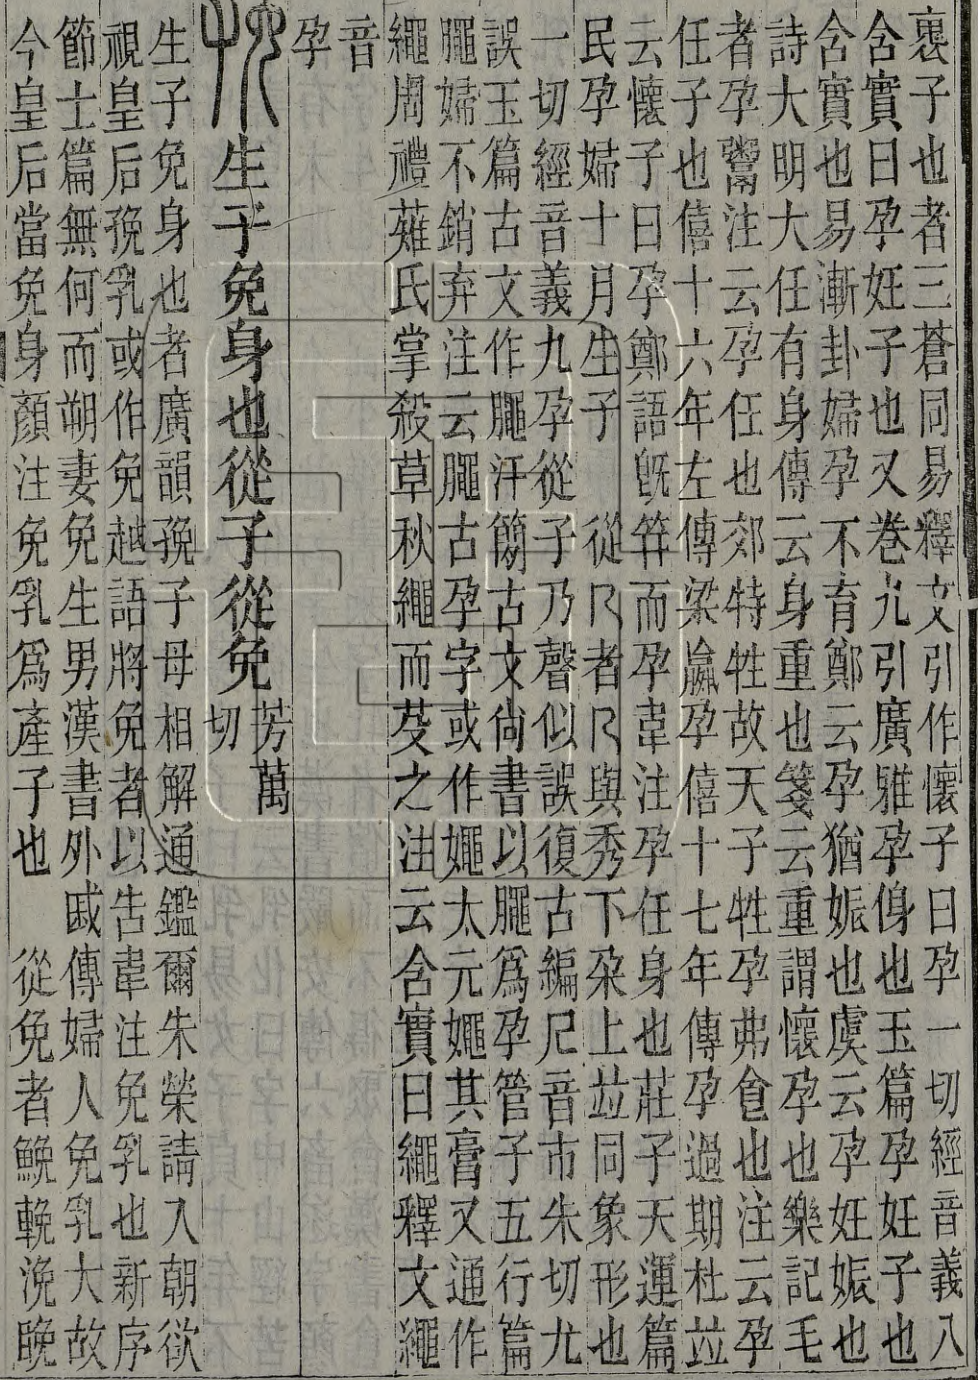 裹子也者三蒼同易釋文引作懷子曰孕一切經音義八
含實曰孕妊子也又卷九引廣雅孕㑗也玉篇孕妊子也
含實也易漸卦婦孕不育鄭云孕猶娠也虞云孕妊娠也
詩大明大任有身傳云身重也箋云重謂懷孕也樂記毛
者孕鬻注云孕任也郊特牲故天子牲孕弗食也注云孕
任子也僖十六年左傳梁嬴孕僖十七年傳孕過期杜竝
云懷子曰孕鄭語旣筓而孕韋注孕任身也莊子天運篇
民孕婦十月生子　從𠘧者𠘧與秀下朶上竝同象形也
一切經音義九孕從子乃聲似誤復古編𠘧音市朱切尤
誤玉篇古文作䵴汗簡古文尙書以䵴爲孕管子五行篇
䵴婦不銷弃注云䵴古孕字或作㜲太元㜲其膏又通作
繩周禮薙氏掌殺草秋繩而芟之注云含實曰繩釋文繩
音
孕
㝃生子免身也從子從免芳萬切
生子免身也者廣韻㝃子母相解通鑑爾朱榮請入朝欲
視皇后㝃乳或作免越語將免者以告韋注免乳也新序
節士篇無何而朔妻免生男漢書外戚傳婦人免乳大故
今皇后當免身顏注免乳爲產子也　從免者鮸輓浼晚